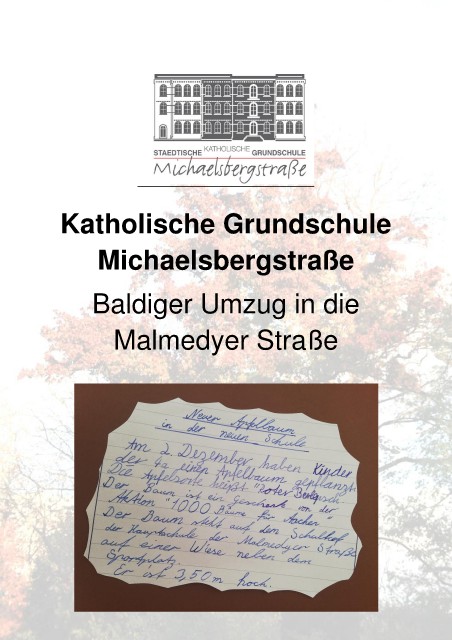 STAEDTISCHE KATHOLISCHE GRUNDSCHULE
Michaelsbergstraße
Katholische Grundschule
Michaelsbergstraße
Baldiger Umzug in die
Malmedyer Straße
Neuer Apfelbaum
in der neuen Schule
Am 2. Dezember haben Kinder
der 4a einen Apfelbaum gepflanzt.
Die Apfelsorte heißt "Roter
Der Baum ist ein Geschenk von der
Aktion "1000 Bäume für Aachen"
Der Baum steht auf dem Schulhof
der Hauptschule der Malmedyer Straße
auf einer Wiese neben dem
Sportplatz.
Er ist 3,50m hoch.